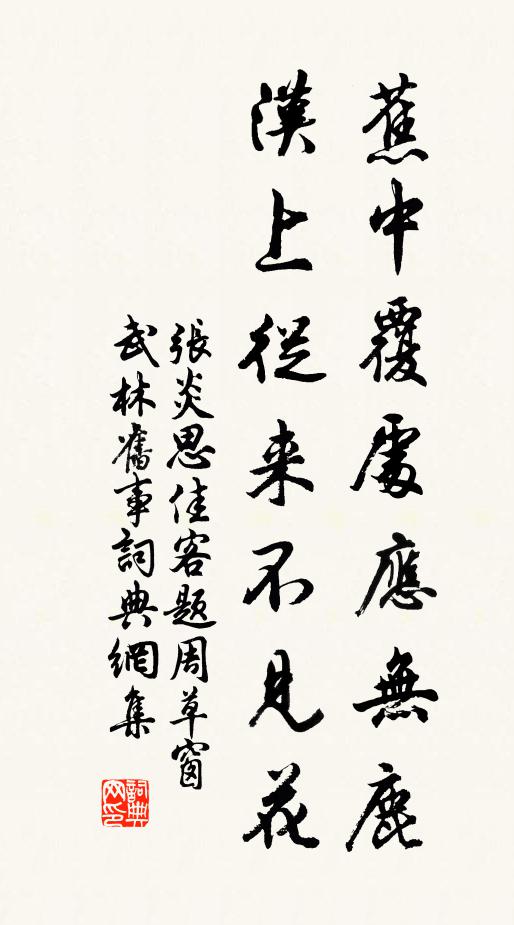 蕉中覆處應無鹿
漢上從来不見花
張炎思佳客題周草窗
武林舊事詞典網集
詞典网印